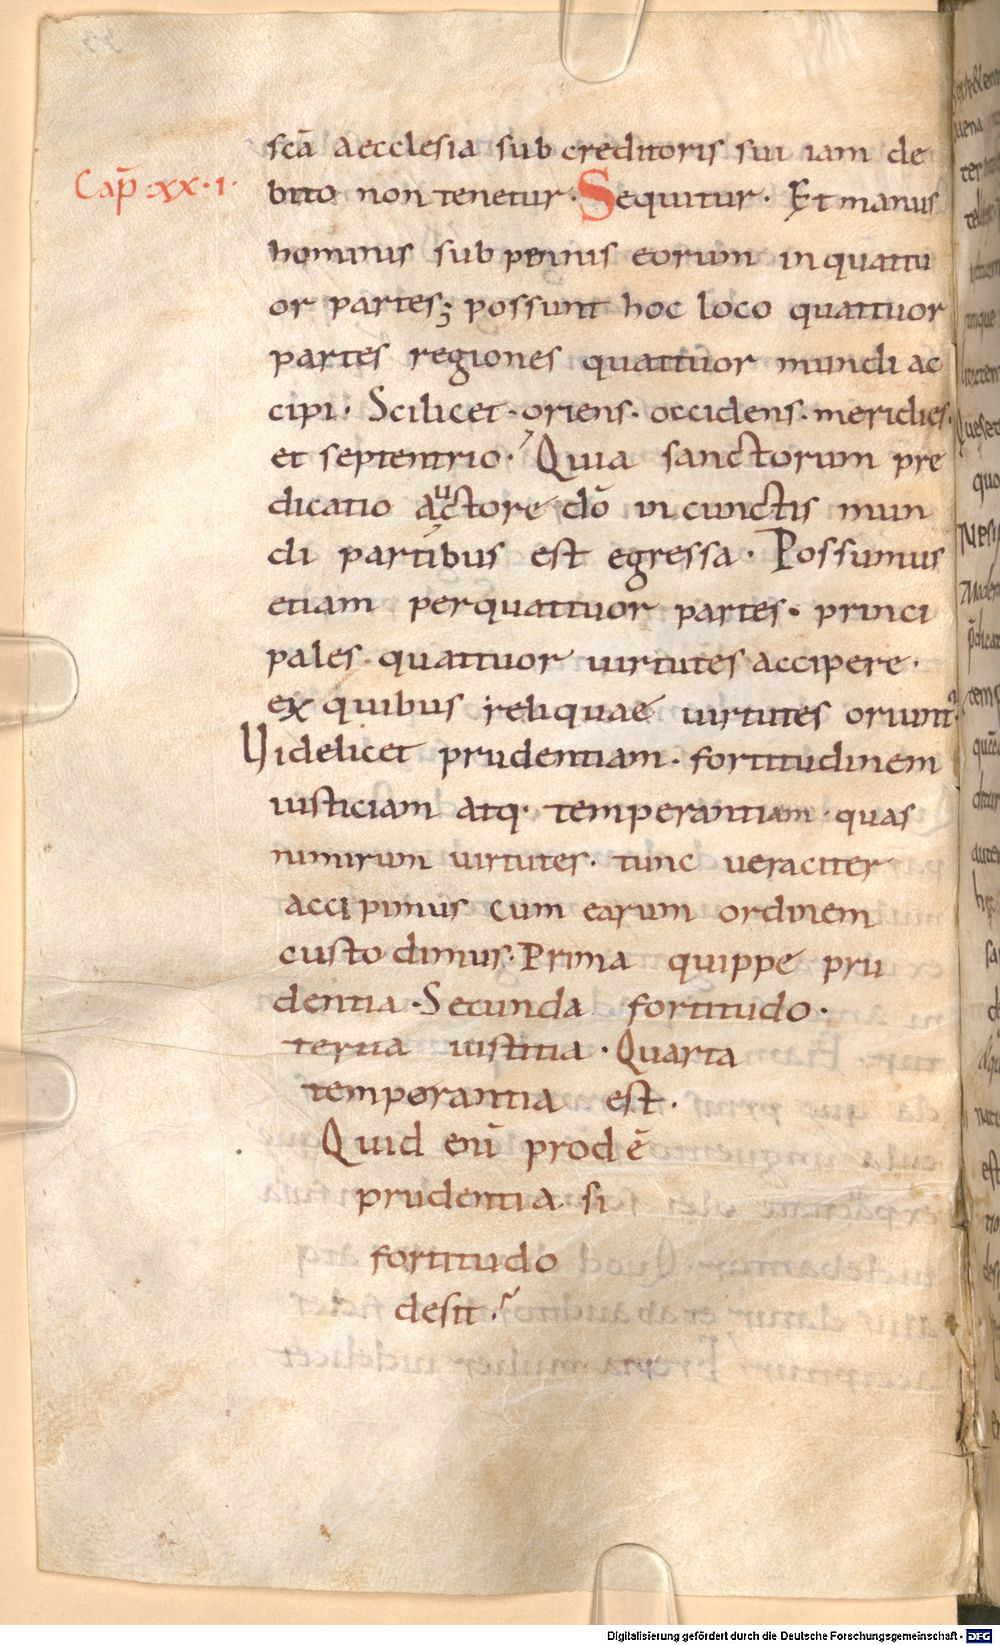 scā aecclesia sub creditoris sui iam de
Cap̄ · xx · 1 ·
bito non tenetur · Sequitur · Et manus
hominis sub pennis eorum in quattu
or partes; possunt hoc loco quattuor
partes regiones quattuor mundi ac
cipi · Scilicet · oriens · occidens · meridies ·
et septentrio · Quia sanctorum pre
dicatio auctore dō in cunctis mun
di partibus est egressa · Possumus
etiam per quattuor partes · princi
pales quattuor uirtutes accipere ·
ex quibus reliquae uirtutes oriunt᷑ ·
Uidelicet prudentiam · fortitudinem
iusticiam atq· temperantiam · quas
nimirum uirtutes · tunc ueraciter
accipimus cum earum ordinem
custodimus · Prima quippe pru
dentia · Secunda fortitudo ·
tertia iustitia · Quarta
temporantia est ·
Quid enī prodē
prudentia si
fortitudo
desit ·?
Digitalisierung gefördert durch die Deutsche Forschungsgemeinschaft - DFG